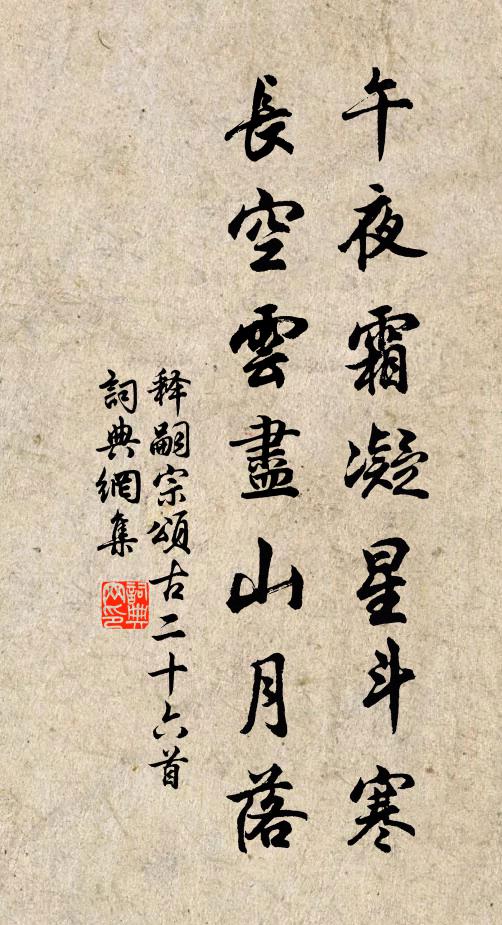 午夜霜凝星斗寒
長空雲盡山月落
釋嗣宗頌古二十六首
詞典網集
詞典網印